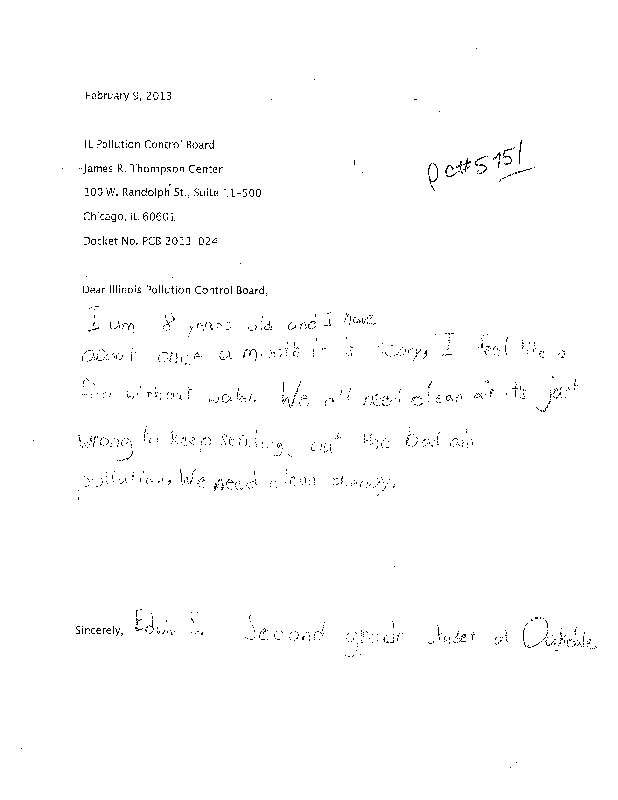 February 9, 2013
IL Pollution Control Board
PC#5151
James R. Thompson Center
100 W. Randolph St., Suite 11-500
Chicago, IL 60601
Docket No. PCB 2013-024
Dear Illinois Pollution Control Board,
I am 8 years old and I have
once a month it is scary, I feel like a
fish without water. We all need clean air its just
wrong to keep sending out the bad air
pollution, We need clean energy.
Sincerely, Edwin S. Second grade at